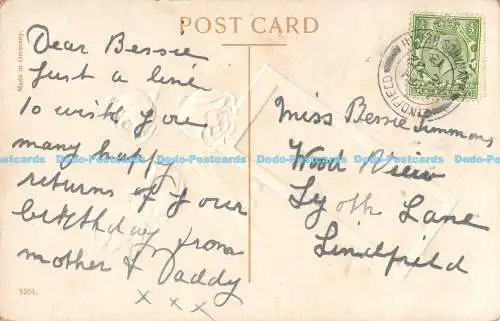 POST CARD
Made in Germany.
Dear Bessie
Just a line
to wish you
many happy
returns of your
birthday from
mother & Daddy
x x x
5204.
Miss Bessie Simmons
Wood View
Lyoth Lane
Lindfield
LINDFIELD
HAYWARDS HEATH
Dodo-Postcards Dodo-Postcards Dodo-Postcards Dodo-Postcards Dodo-Postcards